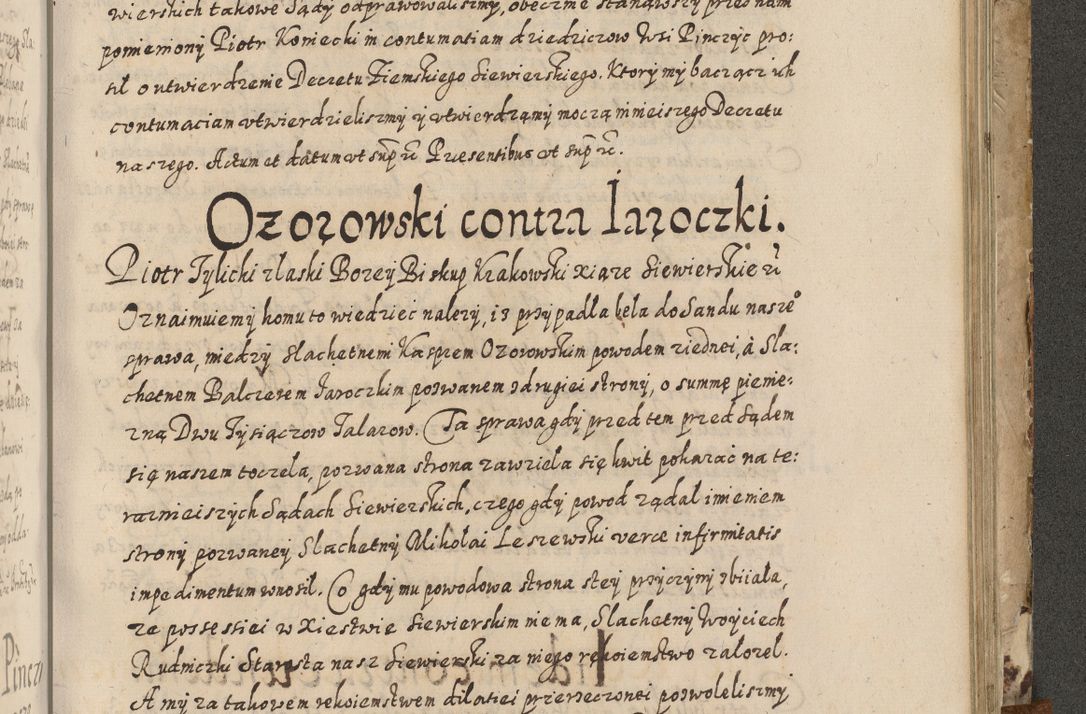 wierskich takowe Sądy odprawowaliszmy, obecznie stanąwszy przed nam
pomieniony Piotr Koniecki in contumatiam dziedziczow Wsi Pinczyc pro:
sił o utwierdzenie Decretu Ziemskiego Siewierskiego. Ktory my bacząc ich
contumaciam utwierdzieliszmy y utwierdzamy moczą ninieiszego Decretu
naszego. Actum et datum ut supra Praesentibus ut supra.
Ozorowski contra Iaroczki.
Piotr Tylicki z laski Bozey Biskup Krakowski Xiąze Siewierskie
Oznaimuiemy komu to wiedziec nalezy, iz przypadła beła do Sandu nasze°
sprawa, miedzy Slachetnem Kasprem Ozorowskim powodem z iednei, à Sla:
chetnem Balczerem Iaroczkim pozwanem z drugiei strony, o summę pienie:
zną Dwu Tysiączow Talarow. Ta sprawa gdy przed tem przed Sądem
się naszem toczela, pozwana strona zawziela się kwit pokazac na te:
raznieiszych Sądach Siewierskich, czego gdy powod ządal imieniem
strony pozwaney Slachetny Mikołai Leszewski verae infirmitatis
impedimentum wnosil. Co gdy mu powodowa strona stey przyczyny zbiiała,
ze possessiei w Xiestwie Siewierskim nie ma, Slachetny Woyciech
Rudniczki Starosta nasz Siewierski za niego rękoiemstwo załozel.
A my za takowem rekoiemstwem dilatiei przerzeczonei pozwoleliszmy